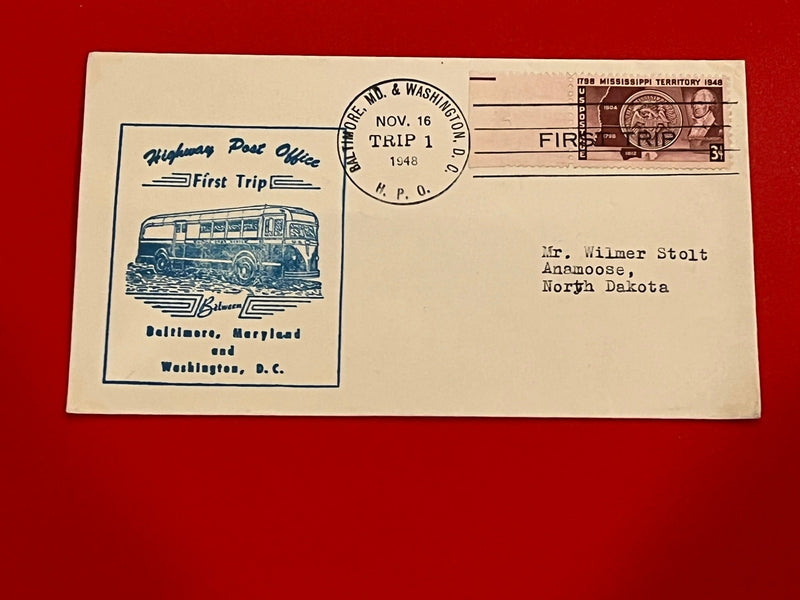 Highway Post Office
First Trip
Between
Baltimore, Maryland
and
Washington, D.C.
BALTIMORE, MD. & WASHINGTON, D.C.
NOV. 16
TRIP 1
1948
H. P. O.
1798 MISSISSIPPI TERRITORY 1948
U S POSTAGE
1804
1798
1812
3¢
FIRST TRIP
Mr. Wilmer Stolt
Anamoose,
North Dakota